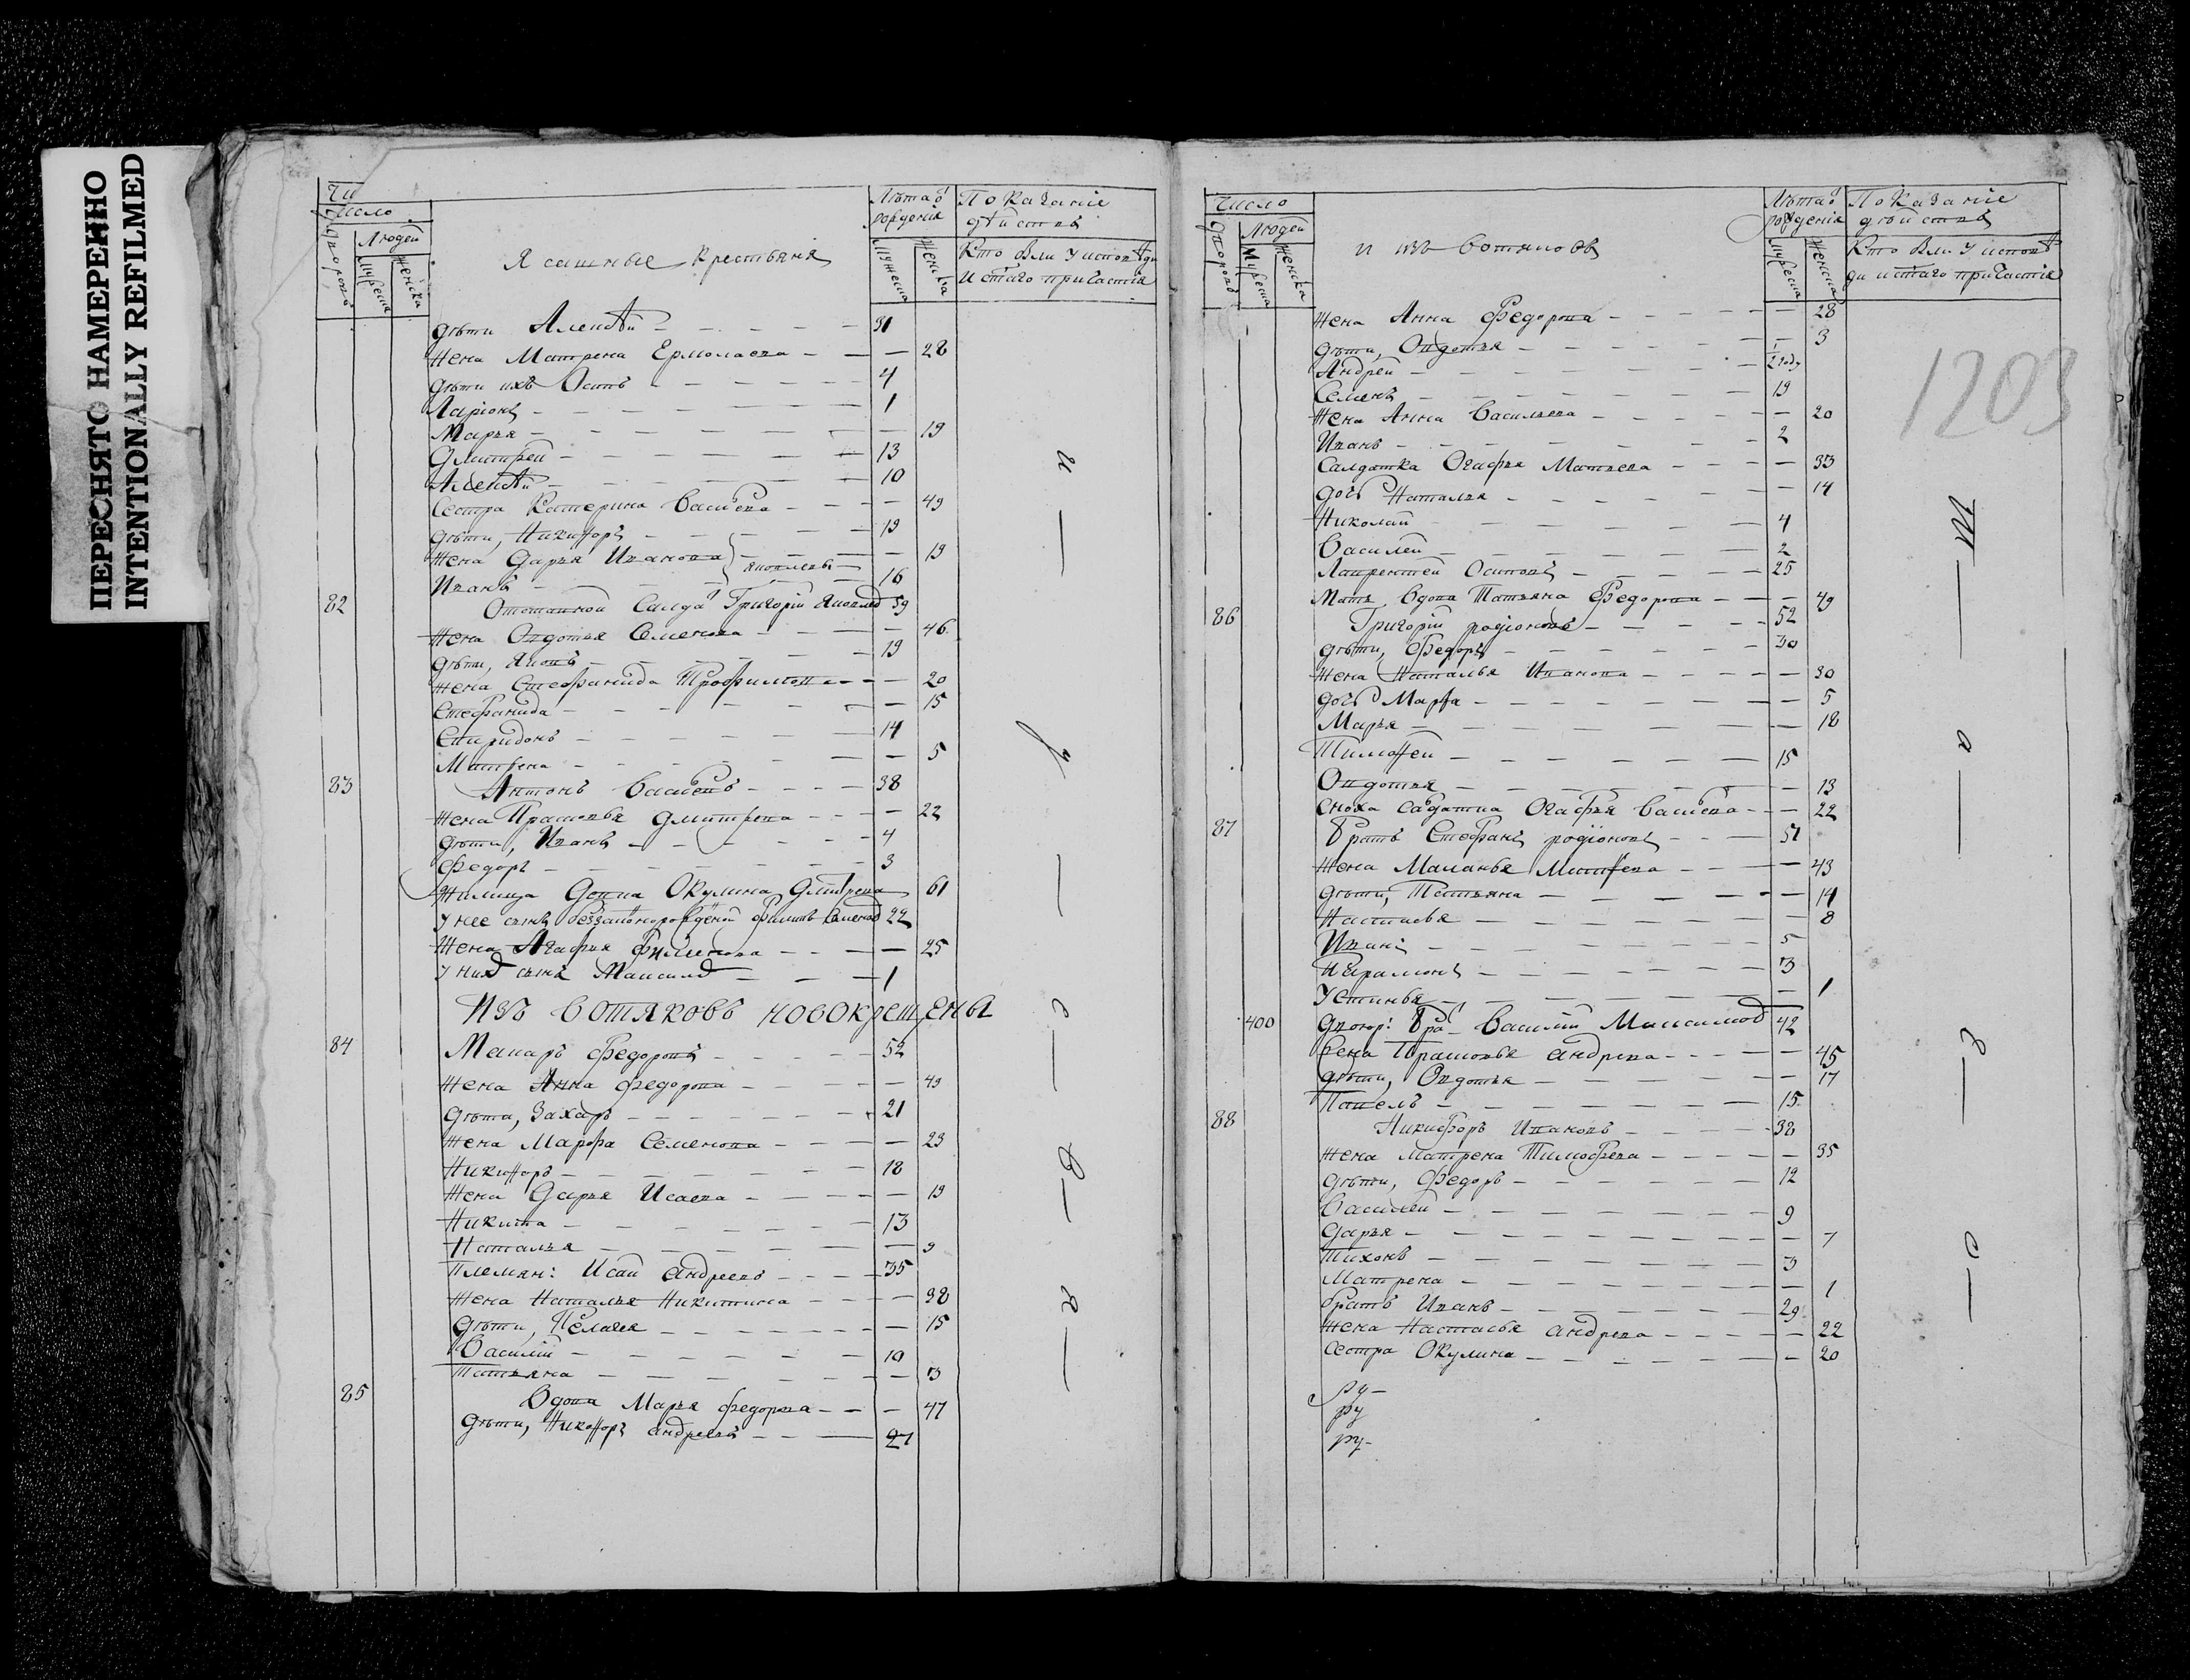 ПЕРЕСНЯТО НАМЕРЕННО
INTENTIONALLY REFILMED
Чи
число
Дворовъ
Людей
Мужеска
Женска
Ясашные крестьяня
Лѣта от рождения
Мужеска
Женска
Показаніе дѣйствъ
Кто былъ у исповѣди и свтаго причастія
дѣти Алексѣй — 31
жена Матрена Ермолаева — 28
дѣти ихъ Осипъ — 4
Ларіонъ — 1
Марья — 19
Дмитрей — 13
Алексѣй — 10
Сестра Катерина Васильева — 49
дѣти, Никифоръ — 19
жена Дарья Иванова — 19
Яковлевы
Иванъ — 16
82 Отставной Салдат Григорій Яковлев 59
жена Овдотья Семенова — 46
дѣти, Яковъ — 19
жена Стефанида Трофимова — 20
Стефанида — 15
Спиридонъ — 14
Матрена — 5
83 Антонъ Васильевъ — 38
жена Прасковья Дмитрева — 22
дѣти, Иванъ — 4
Федоръ — 3
Жилица Девка Окулина Дмитрева 61
У нее сынъ беззаконорожденой Филипъ Семенов 22
Жена Агафья Филипова — 25
У них сынъ Максимъ — 1
Изъ вотяковъ новокрещены
84 Макаръ Федоровъ — 52
жена Анна Федорова — 49
дѣти, Захаръ — 21
жена Марфа Семенова — 23
Никифоръ — 18
жена Дарья Исаева — 19
Никита — 13
Наталья — 9
Племян: Исай Андреевъ — 35
жена Наталья Никитина — 38
дѣти, Пелагея — 15
Василій — 10
Татьяна — 3
85 Вдова Марья Федорова — 47
дѣти, Никифоръ Андреевъ — 27
и
—
у
—
с
—
в
—
я
—
Число
Дворовъ
Людей
Мужеска
Женска
и изъ вотяковъ
Лѣта от рожденія
Мужеска
Женска
Показаніе дѣйствъ
Кто былъ у исповѣди и свтаго причастія
1203
жена Анна Федорова — 28
дѣти, Овдотья — 3
Андрей — ½ году
Семенъ — 19
жена Анна Васильева — 20
Иванъ — 2
Салдатка Огафья Матвева — 33
дочь Наталья — 14
Николай — 4
Василей — 2
Лаврентей Осиповъ — 25
Мать вдова Татьяна Федорова — 49
86 Григорій родіоновъ — 52
дѣти, Федоръ — 30
жена Наталья Иванова — 30
дочь Марѳа — 5
Марья — 18
Тимоѳей — 15
Овдотья — 13
Сноха салдатка Огафья Васильева — 22
87 Братъ Стефанъ родіоновъ — 51
жена Маланья Матвева — 43
дѣти, Татьяна — 14
Настасья — 8
Иванъ — 5
Парамонъ — 3
Устинья — 1
400 Двоюр: Бра Василій Максимов 42
жена Прасковья Андрева — 45
дѣти, Овдотья — 17
Павелъ — 15
88 Никифоръ Ивановъ — 38
жена Матрена Тимофева — 35
дѣти, Федоръ — 12
Василей — 9
Дарья — 7
Тихонъ — 3
Матрена — 1
братъ Иванъ — 29
жена Настасья Андрева — 22
сестра Окулина — 20
ру —
ру
ру —
а
—
с
—